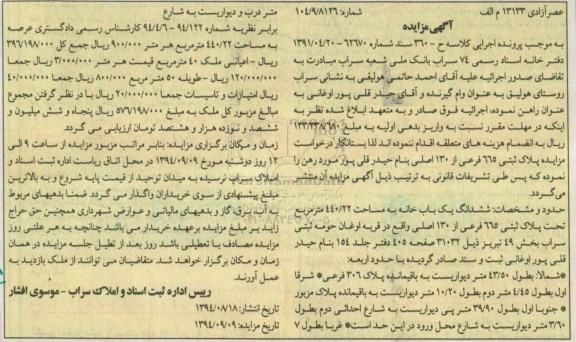 عصرآزادی ۱۳۱۳۳ م الف
شماره: ۱۰۴/۹/۸۱۲۶
آگهی مزایده
به موجب پرونده اجرایی کلاسه ح - ۳۶۰ سند شماره ۶۲۶۷۰ - ۱۳۹۱/۰۴/۲۰
دفتر خانه اسناد رسمی ۷۴ سراب بانک ملی شعبه سراب مبادرت به
تقاضای صدور اجرائیه علیه آقای احمد حاتمی هولیقی به نشانی سراب
روستای هولیق به عنوان وام گیرنده و آقای حیدر قلی پور اوغانی به
عنوان راهن نموده، اجرائیه فوق صادر و به متعهد ابلاغ شده نظر به
اینکه در مهلت مقرر نسبت به واریز بدهی اولیه به مبلغ
ریال به انضمام هزینه های متعلقه اقدام ننموده اند لذا بستانکار درخواست
مزایده پلاک ثبتی ۶۶۵ فرعی از ۱۳۰ اصلی بنام حیدر قلی پور مورد رهن را
نموده که پس طی تشریفات قانونی به ترتیب ذیل آگهی مزایده آن منتشر
می‌گردد.
حدود و مشخصات: ششدانگ یک باب خانه به مساحت ۴۴۰/۲۲ مترمربع
تحت پلاک ثبتی ۶۶۵ فرعی از ۱۳۰ اصلی واقع در قریه اوغان حومه ثبتی
سراب بخش ۴۹ تبریز ذیل ۳۱۰۳۲ صفحه ۴۰۵ دفتر جلد ۱۵۴ بنام حیدر
قلی پور اوغانی ثبت و سند صادر گردیده با حدود اربعه:
*شمالا: بطول ۴۳/۵۰ متر دیواریست به باقیمانده پلاک ۳۰۶ فرعی * شرقا
اول بطول ۴/۴۵ متر دوم بطول ۱۰/۲۰ متر دیواریست به باقیمانده پلاک مزبور
* جنوبا اول بطول ۳۹/۹۰ متر پی دیواریست به شارع احداثی دوم بطول
۳/۶۰ متر دیواریست به شارع محل ورود در این حد است * غربا بطول ۷
متر درب و دیواریست به شارع
برابر نظریه شماره ۹۴/۱۲۲ - ۹۴/۴/۶ کارشناس رسمی دادگستری عرصه
به مساحت ۴۴۰/۲۲ مترمربع هر متر ۹۰۰/۰۰۰ ریال جمع کل ۳۹۶/۱۹۸/۰۰۰
ریال - اعیانی ملک ۴۰ مترمربع قیمت هر متر ۳/۰۰۰/۰۰۰ ریال جمعا
۱۲۰/۰۰۰/۰۰۰ ریال - طویله ۵۰ متر مربع ۸۰۰/۰۰۰ ریال جمعا ۴۰/۰۰۰/۰۰۰
ریال امتیازات و تاسیسات جمعا ۲۰/۰۰۰/۰۰۰ ریال با در نظر گرفتن مجموع
مبالغ مزبور کل ملک به مبلغ ۵۷۶/۱۹۸/۰۰۰ ریال پنجاه و شش میلیون و
ششصد و نوزده هزار و هشتصد تومان ارزیابی می گردد.
زمان و مکان برگزاری مزایده: بنابر مراتب مزبور مزایده از ساعت ۹ الی
۱۲ روز دوشنبه مورخ ۱۳۹۴/۰۹/۰۹ در محل اتاق ریاست اداره ثبت اسناد و
املاک سراب نرسیده به میدان توحید از قیمت پایه شروع و به بالاترین
مبلغ پیشنهادی از سوی خریداران واگذار می گردد ضمنا بدهیهای مربوط
به آب، برق، گاز و بدهیهای مالیاتی و عوارض شهرداری همچنین حق حراج
زاید بر مبلغ مزایده برعهده خریدار می باشد چنانچه به هر علتی روز
مزایده مصادف با تعطیلی باشد روز بعد از تعطیل جلسه مزایده در همان
زمان و مکان برگزار خواهد شد. متقاضیان می توانند از ملک بازدید به
عمل آورند.
رییس اداره ثبت اسناد و املاک سراب - موسوی افشار
تاریخ انتشار: ۱۳۹۴/۰۸/۱۸
تاریخ مزایده: ۱۳۹۴/۰۹/۰۹